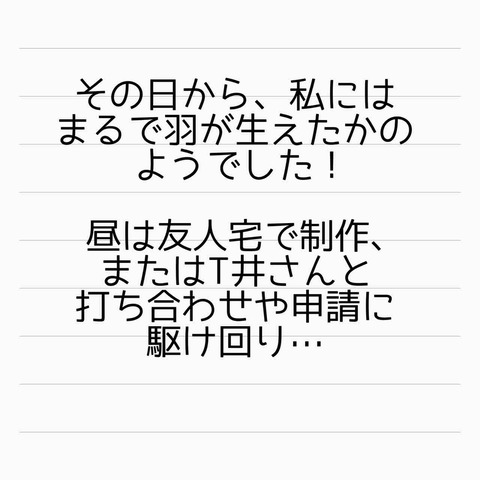 その日から、私には
まるで羽が生えたかの
ようでした！
昼は友人宅で制作、
またはT井さんと
打ち合わせや申請に
駆け回り…